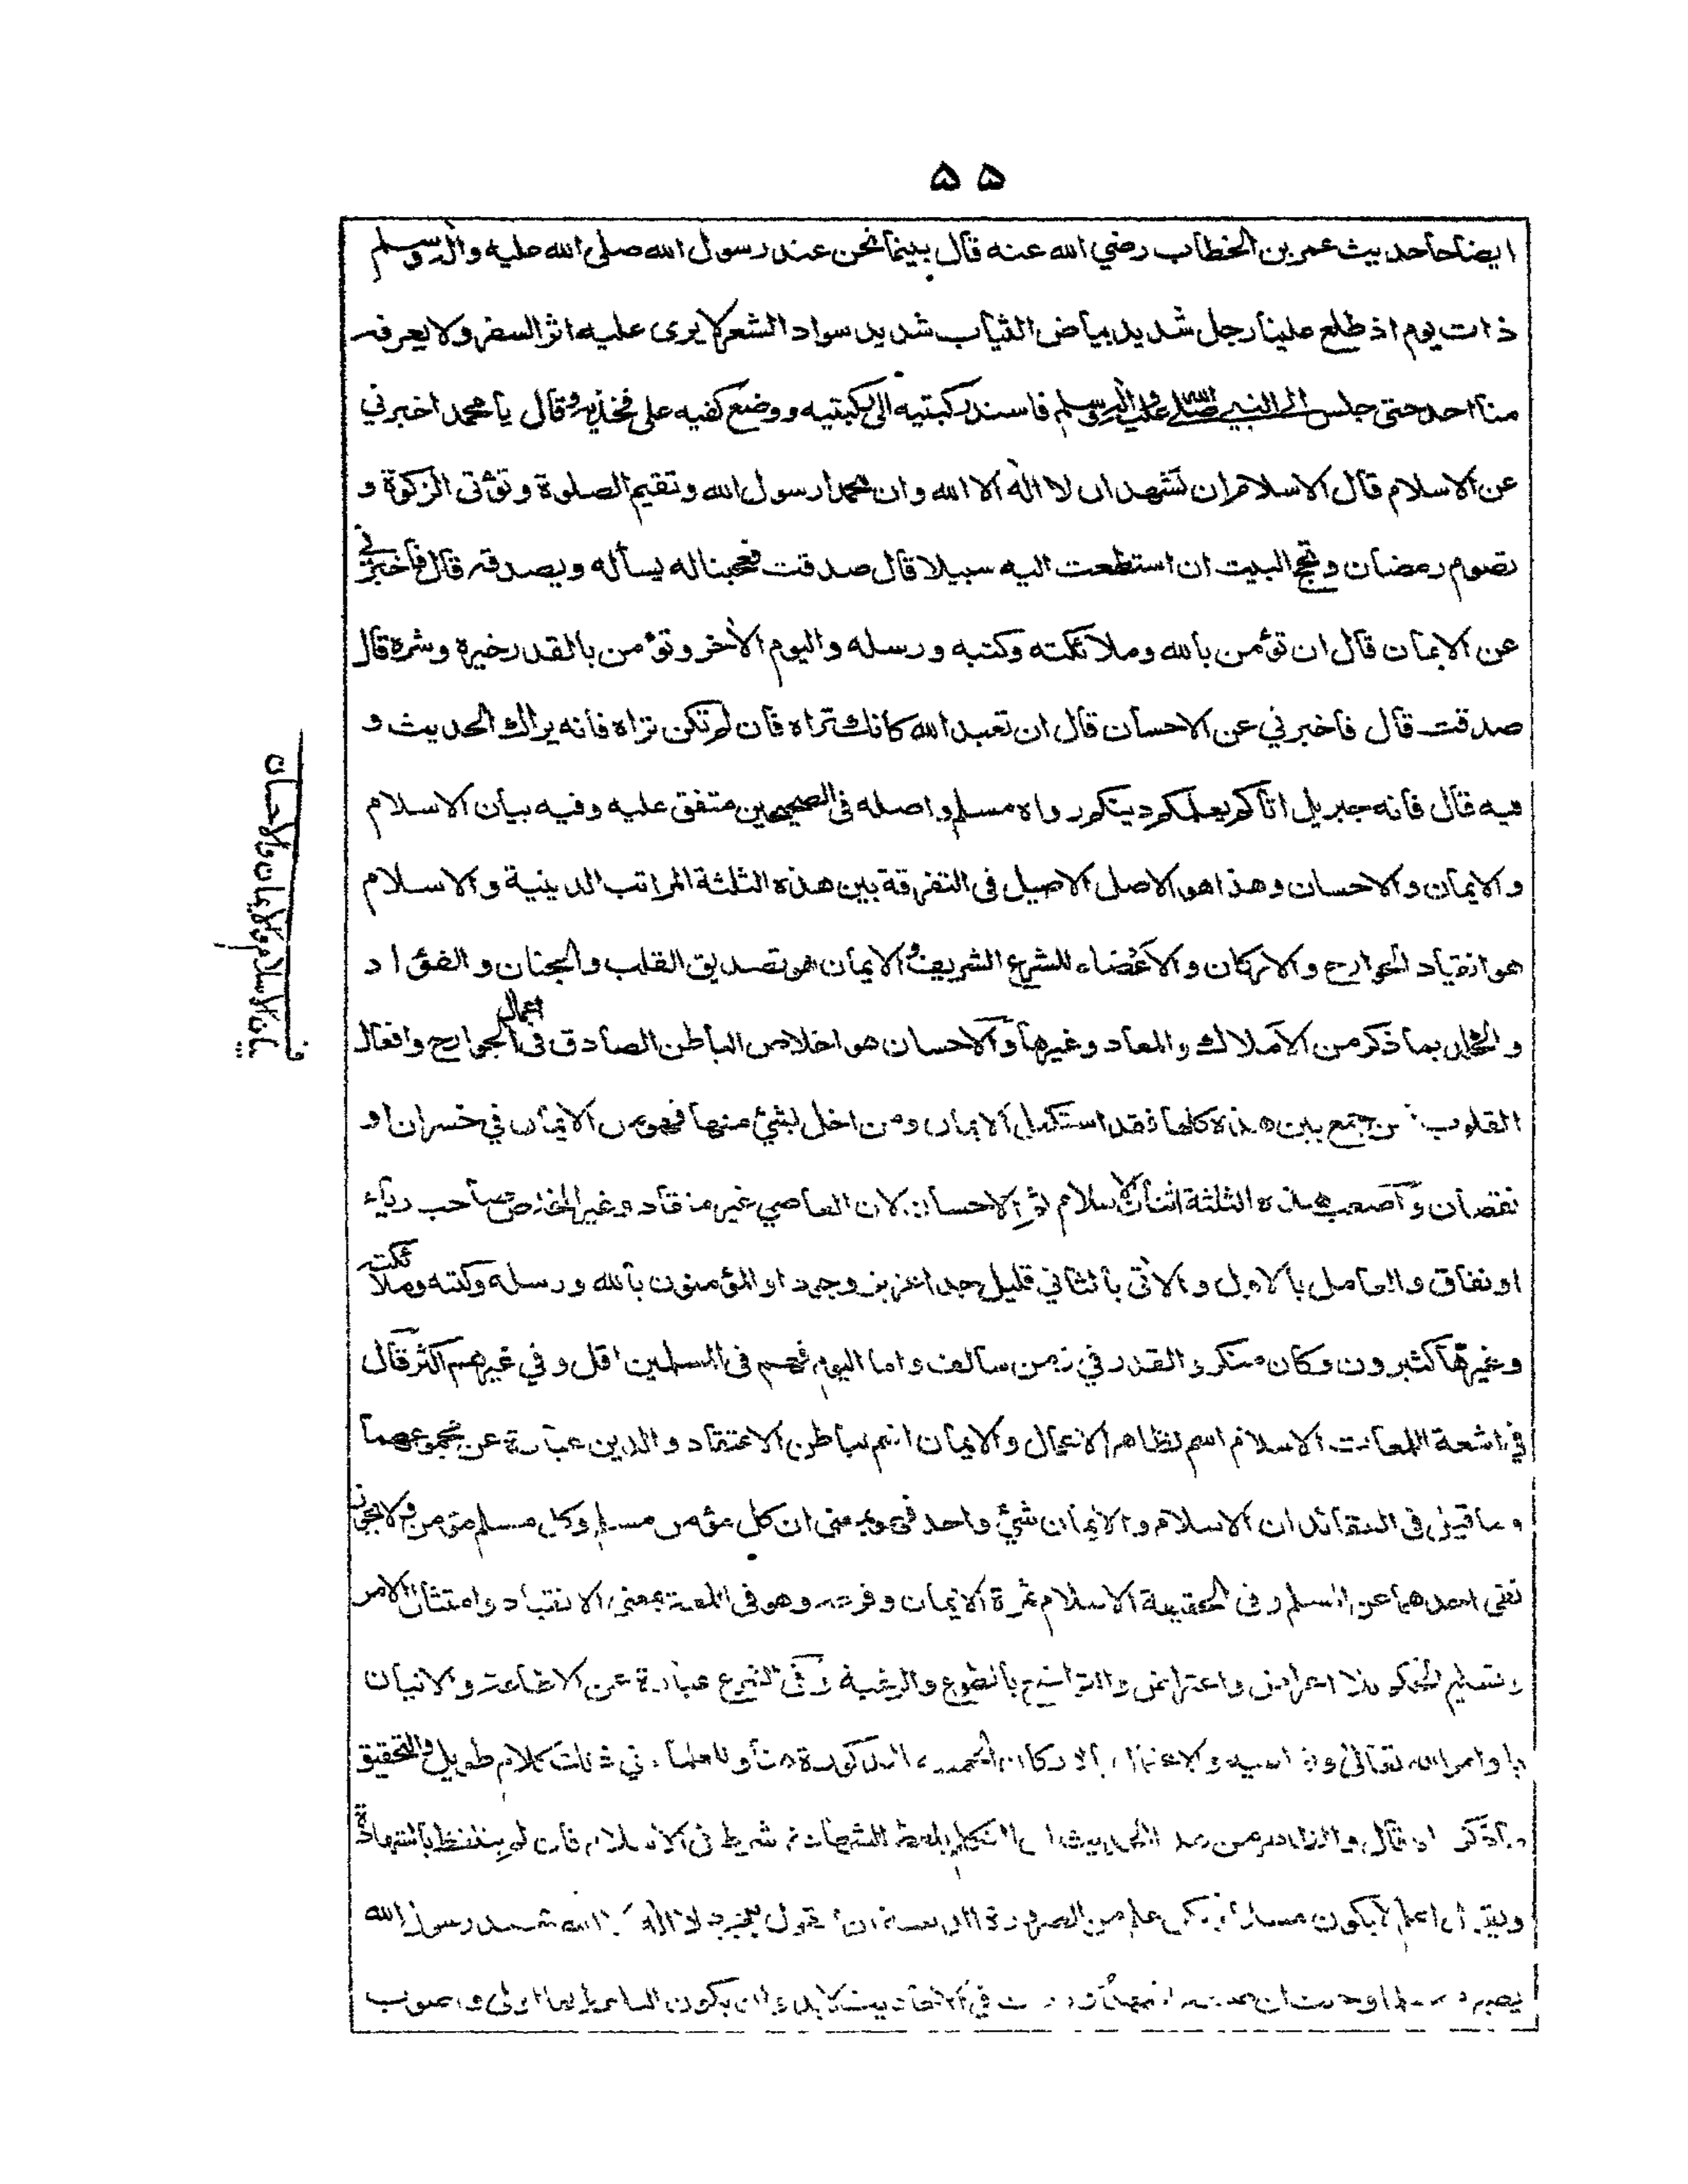 ۵۵
ايضا حديث عمر بن الخطاب رضي الله عنه قال بينما نحن عند رسول الله صلى الله عليه واله وسلم
ذات يوم اذ طلع علينا رجل شديد بياض الثياب شديد سواد الشعر لا يرى عليه اثر السفر ولا يعرفه
منا احد حتى جلس الى النبي صلى الله عليه واله وسلم فاسند ركبتيه الى ركبتيه ووضع كفيه على فخذيه وقال يا محمد اخبرني
عن الاسلام قال الاسلام ان تشهد ان لا اله الا الله وان محمدا رسول الله وتقيم الصلوة وتؤتى الزكوة و
تصوم رمضان وتحج البيت ان استطعت اليه سبيلا قال صدقت فعجبنا له يسأله ويصدقه قال فاخبرني
عن الايمان قال ان تؤمن بالله وملائكته وكتبه ورسله واليوم الأخر وتؤمن بالقدر خيره وشره قال
صدقت قال فاخبرني عن الاحسان قال ان تعبد الله كانك تراه فان لم تكن تراه فانه يراك الحديث و
فيه قال فانه جبريل اتاكم يعلمكم دينكم رواه مسلم واصله فى الصحيحين متفق عليه وفيه بيان الاسلام
والايمان والاحسان وهذا هو الاصل الاصيل فى التفرقة بين هذه الثلثة المراتب الدينية والاسلام
هو انقياد الجوارح والاركان والاعضاء للشرع الشريف والايمان هو تصديق القلب والجنان والفؤاد
بما ذكر من الاملاك والمعاد وغيرها والاحسان هو اخلاص الباطن الصادق فى اعمال الجوارح وافعال
القلوب فمن جمع بين هذه كلها فقد استكمل الايمان ومن اخل بشئ منها فهو من الايمان في خسران او
نقصان واصعب هذه الثلثة اثنان الاسلام ثم الاحسان لان العاصي غير منقاد وغير المخلص صاحب رياء
او نفاق والعامل بالاول والأتى بالثاني قليل جدا عزيز وجود او المؤمنون بالله ورسله وكتبه وملائكته
وغيرها كثيرون وكان منكروا القدر في زمن سالف واما اليوم فهم فى المسلمين اقل وفي غيرهم اكثر قال
في اشعة اللمعات الاسلام اسم لظاهر الاعمال والايمان اسم لباطن الاعتقاد والدين عبارة عن مجموعهما
وما قيل فى العقائد ان الاسلام والايمان شئ واحد فهو بمعنى ان كل مؤمن مسلم وكل مسلم مؤمن ولا يجوز
نفى احدهما عن المسلم وفى الحقيقة الاسلام ثمرة الايمان وفرعه وهو فى اللغة بمعنى الانقياد وامتثال الامر
وتسليم الحكم بلا اعراض واعتراض والتراضي بالطوع والرغبة وفى الشرع عبارة عن الاطاعة والاتيان
باوامر الله تعالى ونواهيه بالاركان الخمسة المذكورة هنا وللعلماء في ذلك كلام طويل والتحقيق
ما ذكر قال والظاهر من هذا الحديث ان التكلم بلفظ الشهادة شرط فى الاسلام فان لم يتلفظ بالشهادة
لا يكون مسلما علم من الضرورة الدينية ان يقول لا اله الا الله محمد رسول الله
يصير مسلما وردت في الاحاديث يكون اولى واصوب
ف
بيان الاسلام والايمان والاحسان